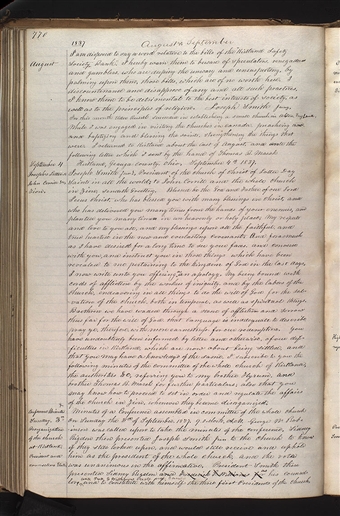 770
1837
August & September
August
I am disposed to say a word relative to the bills of the Kirtland Safety
Society Bank. I hereby warn them to beware of speculators, renegades
and gamblers, who are duping the unwary and unsuspecting, by
palming upon them, those bills, which are of no worth here. I
discountenance and disapprove of any and all such practices.
I know them to be detrimental to the best interests of society, as
well as to the principles of religion. Joseph Smith Jun.
While I was engaged in visiting the churches in Canada, preaching
and baptizing and blessing the saints, strengthening the things that
were. I returned to Kirtland about the last of August, and wrote the
following letter which I sent by the hand of Thomas B. Marsh
September 4
Kirtland, Geauga county, Ohio, September 4th 1837.
Joseph Smith Jun., President of the Church of Christ of Latter Day
Saints in all the world, to John Corrill and the whole Church
in Zion, sendeth Greeting. Blessed be the God and Father of our Lord
Jesus Christ, who has blessed you with many blessings in Christ, and
who has delivered you many times from the hands of your enemies, and
planted you many times in an heavenly or holy place. My respects
and love to you all, and my blessings upon all the faithful and
true hearted in the new and everlasting covenant. And forasmuch
as I have desired for a long time to see your faces and converse
with you, and instruct you in those things which have been
revealed to me pertaining to the Kingdom of God in the last days,
I now write unto you offering an apology. My being bound with
cords of affliction by the workers of iniquity and by the labors of the
Church, endeavoring in all things to do the will of God, for the sal-
vation of the church, both in temporal as well as spiritual things.
Brethren we have waded through a scene of affliction and sorrow
thus far for the will of God, that language is inadequate to describe
pray ye, therefore, with more earnestness for our redemption. You
have undoubtedly been informed by letter and otherwise, of our dif-
ficulties in Kirtland which are now about being settled, and
that you may have a knowledge of the same, I subscribe to you the
following minutes of the committee of the whole Church of Kirtland,
the authorities &c, refering you to my brother Hyrum, and
brother Thomas B. Marsh for further particulars; also that you
may know how to proceed to set in order and regulate the affairs
of the church in Zion, whenever they become disorganized.
Minutes of a Conference assembled in committee of the whole church
on Sunday the 3rd of September 1837. 9 o'clock, A.M. George W. Rob-
inson was called upon to take the minutes of the conference. Sidney
Rigdon then presented Joseph Smith Jun. to the Church to know
if they still looked upon and would still receive and uphold
him as the President of the whole Church, and the vote
was unanimous in the affirmative. President Smith then
presented Sidney Rigdon